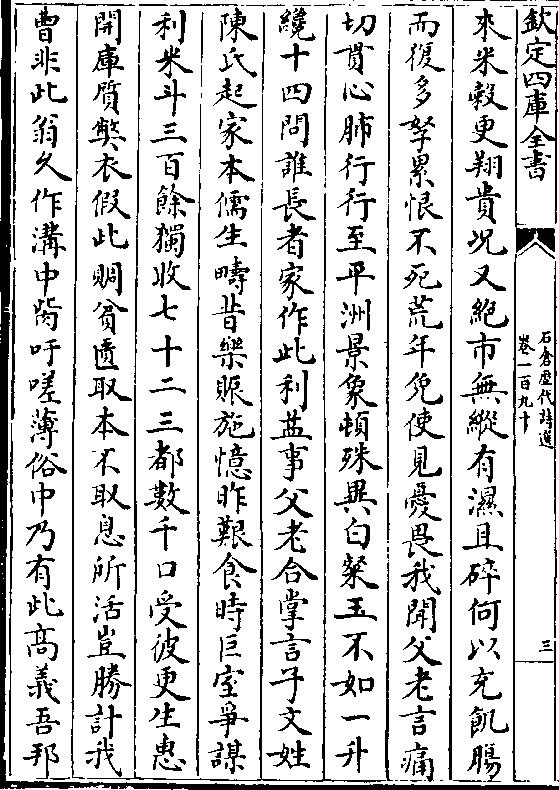 欽定四庫全書
石倉歷代詩選
卷一百九十
三
來米穀更翔貴况又絕市無縱有濕且碎何以充飢腸
而復多孥累恨不死荒年免使見憂畏我聞父老言痛
切貫心肺行行至平洲景象頓殊異白粲玉不如一升
纔十四問誰長者家作此利益事父老合掌言子文姓
陳氏起家本儒生疇昔樂賑施憶昨艱食時巨室爭謀
利米斗三百餘獨收七十二三都數千口受彼更生惠
開庫質獘衣假此賙貧匱取本不取息所活豈勝計我
曹非此翁久作溝中胔吁嗟薄俗中乃有此高義吾邦